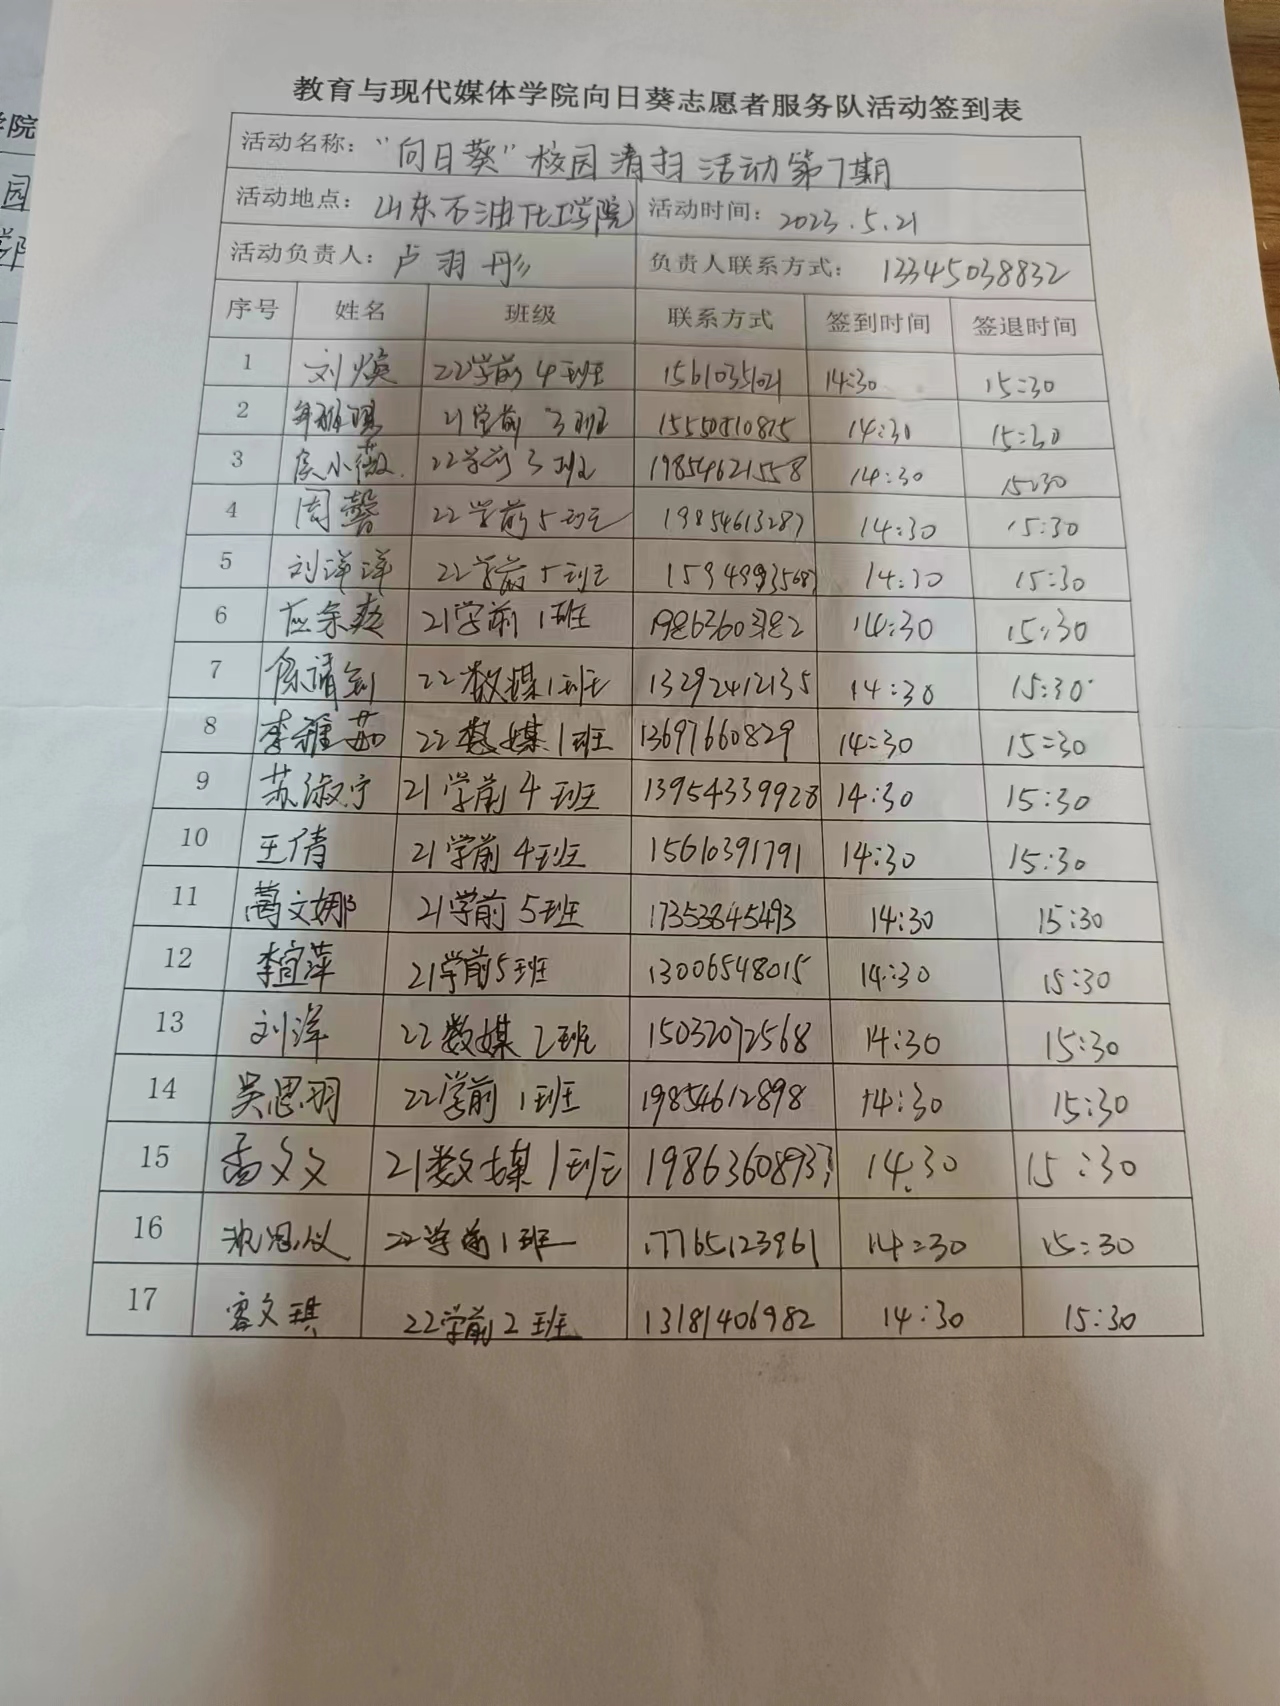 教育与现代媒体学院向日葵志愿者服务队活动签到表
活动名称：“向日葵”校园清扫活动第7期
活动地点：山东石油化工学院 活动时间：2023.5.21
活动负责人：卢羽彤 负责人联系方式：12345038832
序号 姓名 班级 联系方式 签到时间 签退时间
1 刘焕 22学前4班 15610351021 14:30 15:30
2 21学前3班 15550510815 14:30 15:30
3 侯小薇 22学前3班 19854621558 14:30 15:30
4 周馨 22学前5班 19854613287 14:30 15:30
5 刘洋洋 22学前5班 14:30 15:30
6 21学前1班 19863603182 14:30 15:30
7 22数媒1班 13292412135 14:30 15:30
8 李雅茹 22数媒1班 13697660829 14:30 15:30
9 苏淑宁 21学前4班 13954339928 14:30 15:30
10 王倩 21学前4班 15610391791 14:30 15:30
11 文娜 21学前5班 17353845493 14:30 15:30
12 李宜萍 21学前5班 13006548015 14:30 15:30
13 刘洋 22数媒2班 15032072568 14:30 15:30
14 吴思羽 22学前1班 19854612898 14:30 15:30
15 孟文文 21数媒1班 19863608937 14:30 15:30
16 22学前1班 17765123961 14:30 15:30
17 文琪 22学前2班 13181406982 14:30 15:30
学院
园
学院